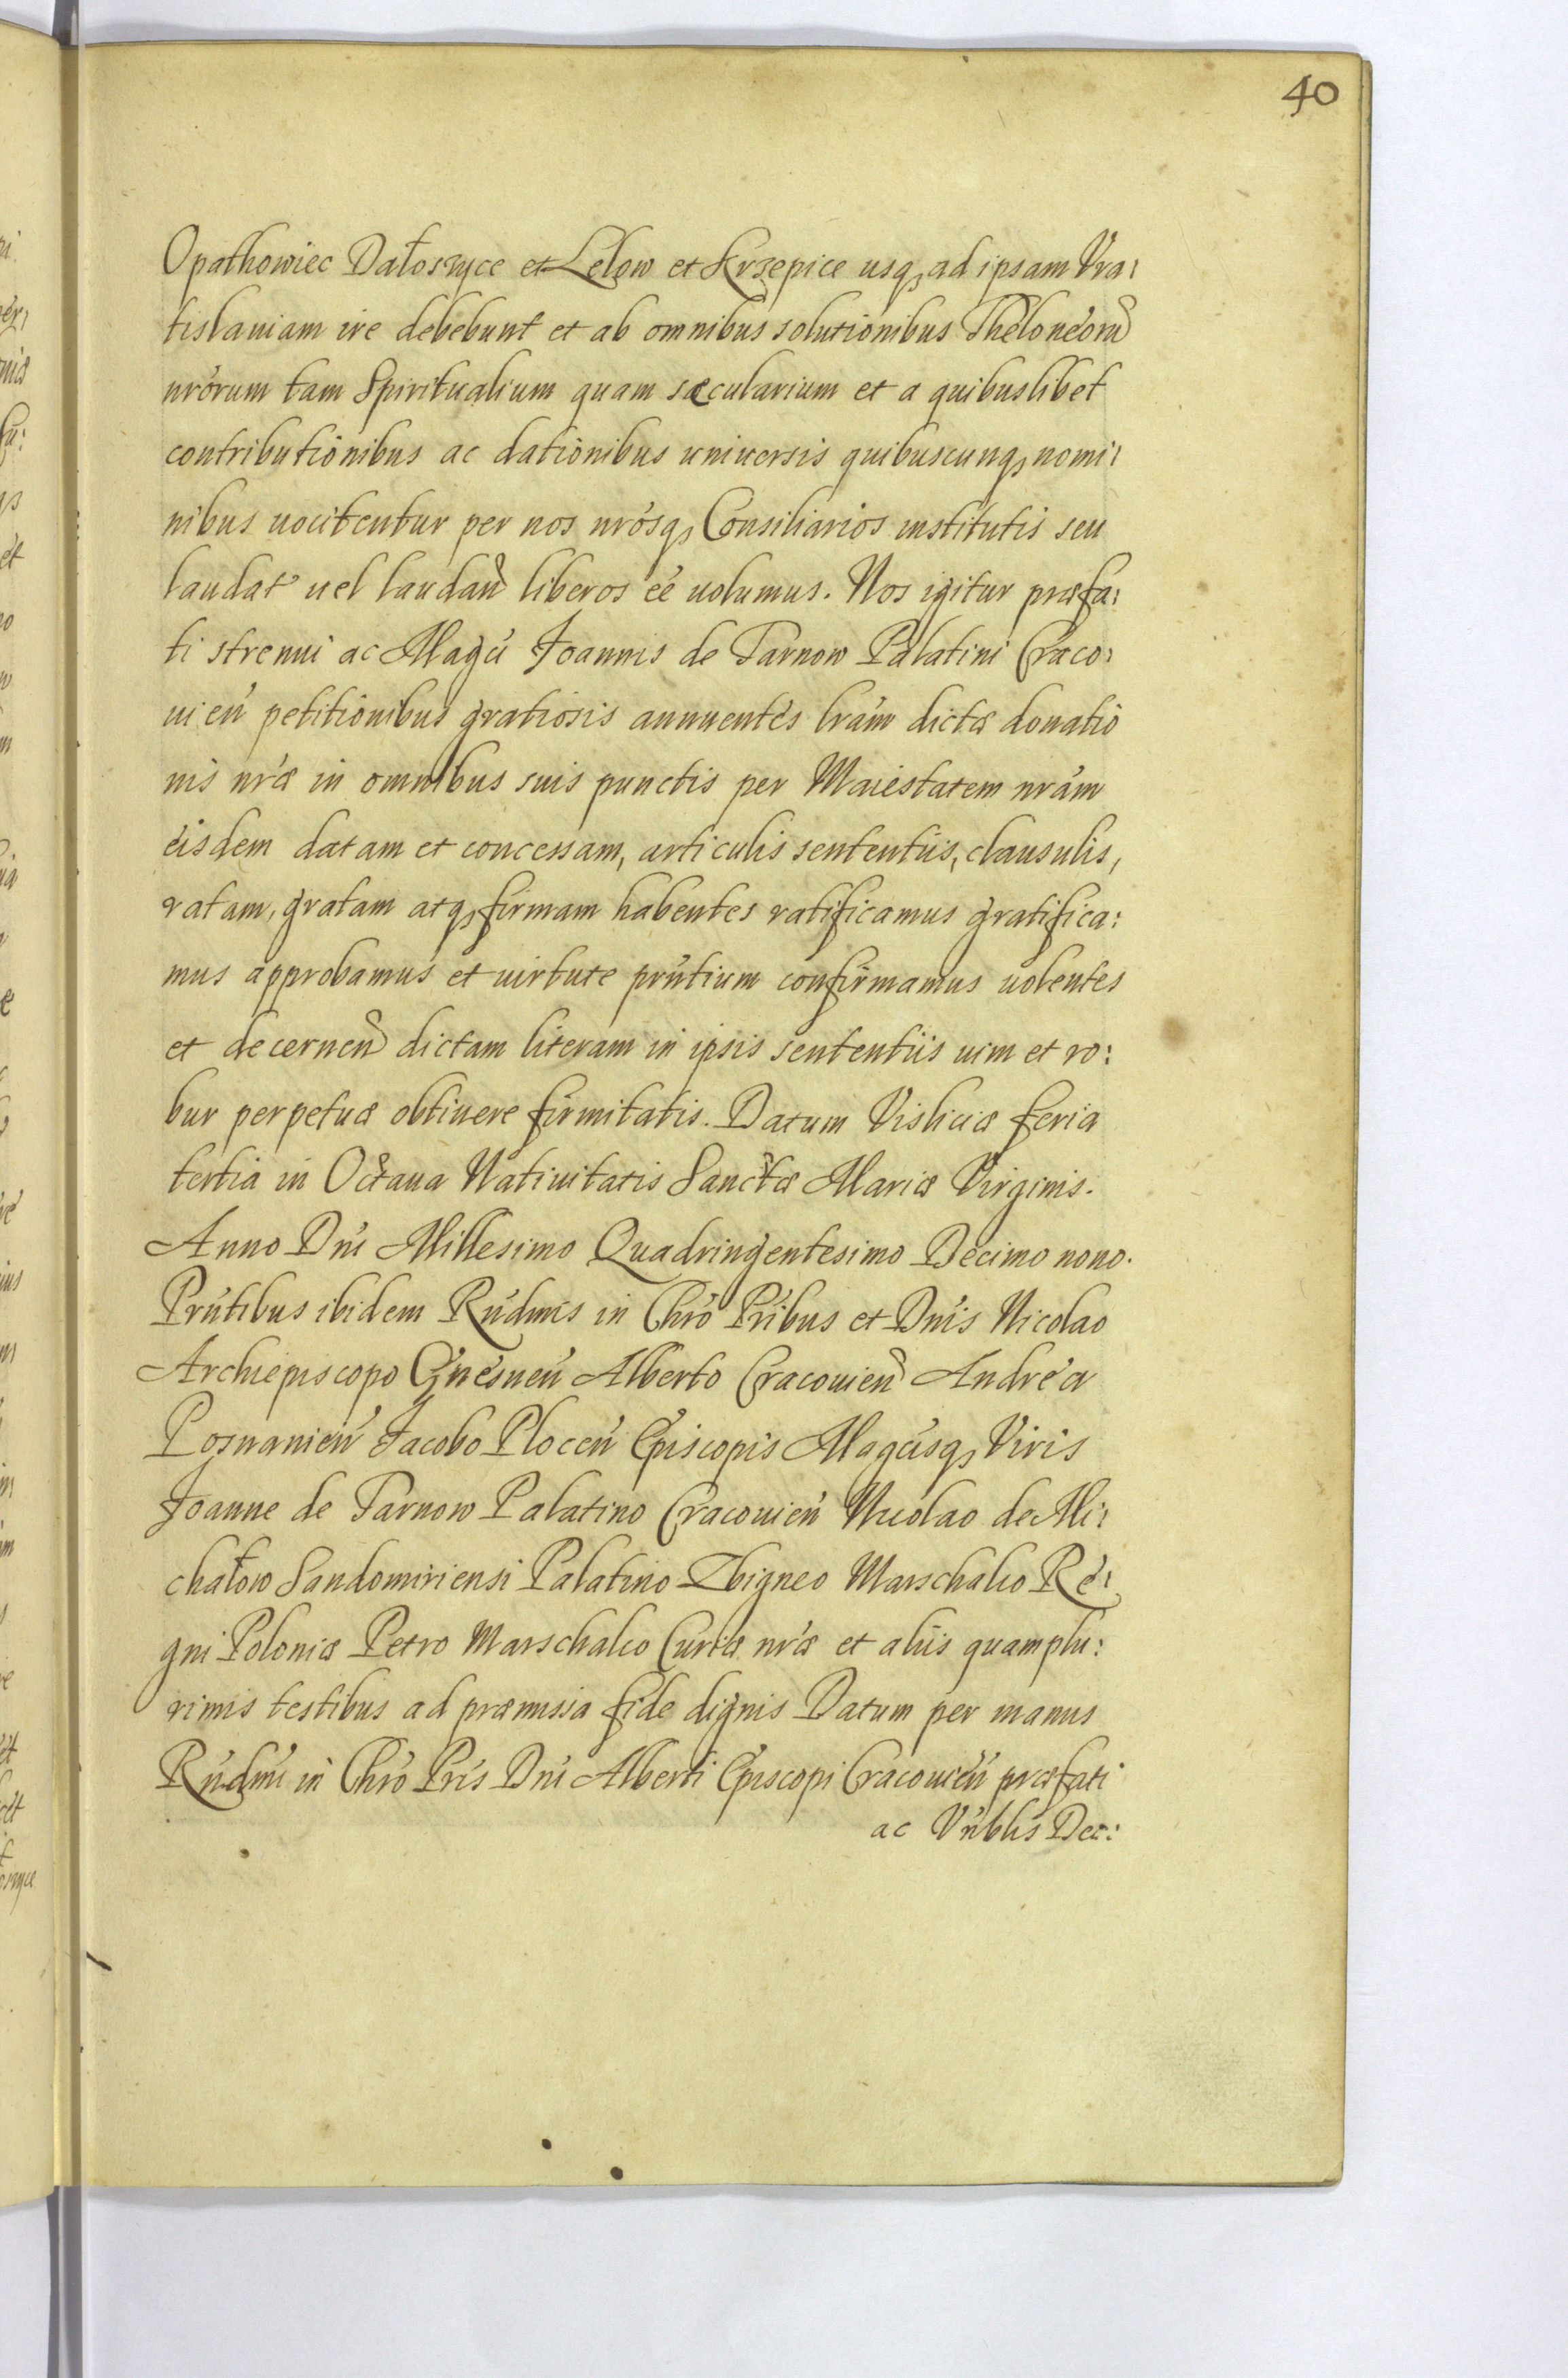 40
Opathowiec Datoszyce et Lelow et Krzepice usq, ad ipsam Vra:
tislauiam ire debebunt et ab omnibus solutionibus Theloneorũ
nrórum tam Spiritualium quam sæcularium et a quibuslibet
contributionibus ac dationibus uniuersis quibuscunq, nomi:
nibus uocitentur per nos nrósq, Consiliarios institutis seu
laudat uel laudañ liberos eé uolumus. Nos igitur præfa:
ti strenui ac Magci Joannis de Tarnow Palatini Craco:
uień petitionibus gratiosis annuentes lrám dictæ donatio
nis nræ in omnibus suis punctis per Maiestatem nrám
eisdem datam et concessam, articulis sententiis, clausulis,
ratam, gratam atq, firmam habentes ratificamus gratifica:
mus approbamus et uirtute prńtium confirmamus uolentes
et decerneñ dictam literam in ipsis sententiis uim et ro:
bur perpetuæ obtinere firmitatis. Datum Visliciæ feria
tertia in Octaua Natiuitatis Sanctæ Mariæ Virginis.
Anno Dńi Millesimo Quadringentesimo Decimo nono.
Prńtibus ibidem Rńdmis in Chró Pribus et Dńis Nicolao
Archiepiscopo Gnesneń Alberto Cracouieñ Andrea
Posnanień Jacobo Ploceń Episcopis Magcisq, Viris
Joanne de Tarnow Palatino Cracouień Nicolao de Mi:
chałow Sandomiriensi Palatino Zbigneo Marschalco Re:
gni Poloniæ Petro Marschalco Curiæ nræ et aliis quamplu:
rimis testibus ad præmissa fide dignis Datum per manus
Rńdmi in Chró Pris Dńi Alberti Episcopi Cracouień præfati
ac Vńblis Dec: